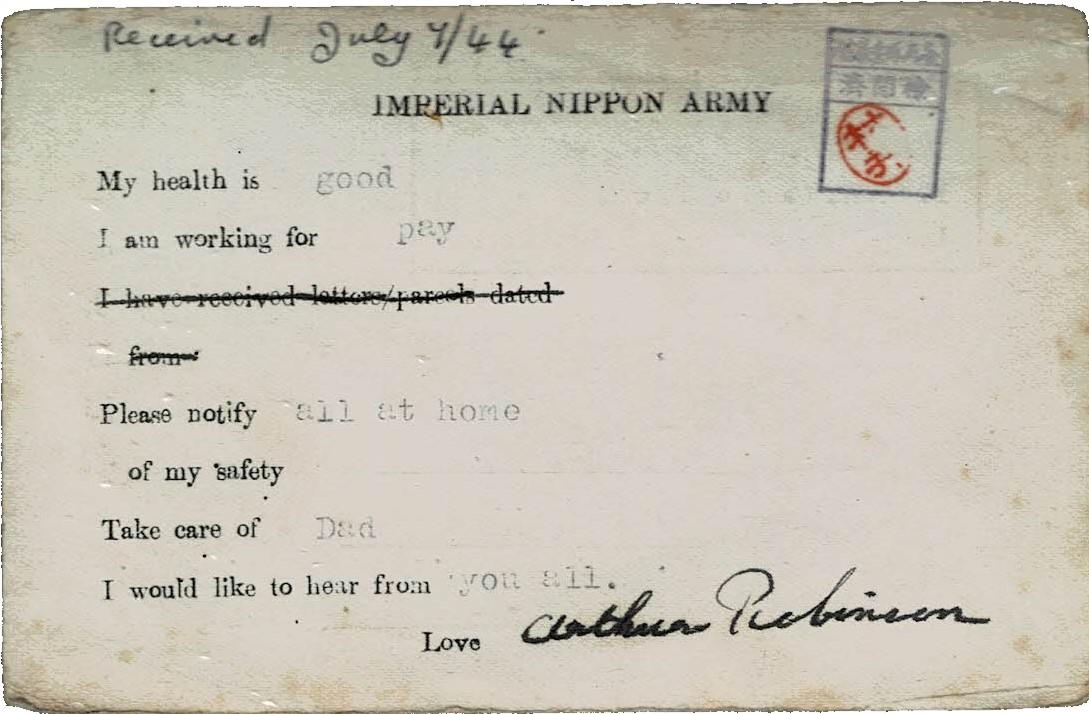 Received July 7/44
IMPERIAL NIPPON ARMY
檢閲済
My health is good
I am working for pay
I have received letters/parcels dated
from
Please notify all at home
of my safety
Take care of Dad
I would like to hear from you all.
Love Arthur Robinson